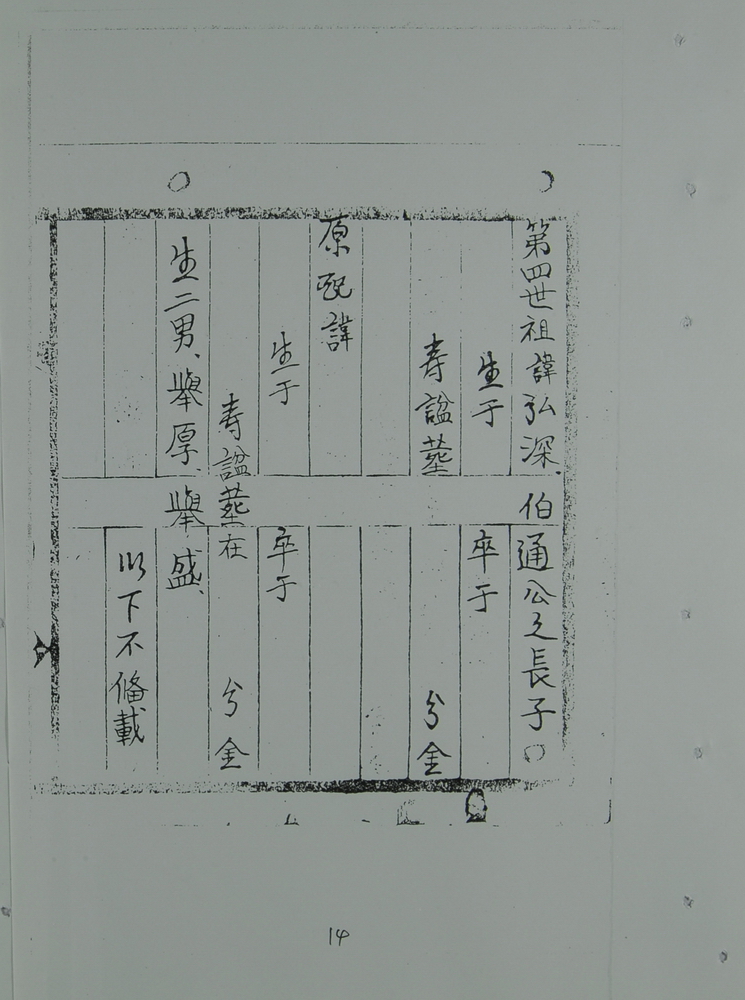 第四世祖諱弘深、伯通公之長子○
生于 卒于
寿諡墓 分金
原配諱
生于 卒于
寿諡墓在 分金
生二男、舉厚、舉盛、
以下不俻載
14